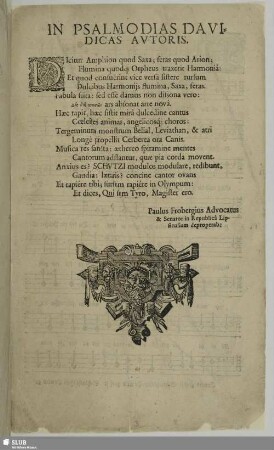 IN PSALMODIAS DAVI-
DICAS AVTORIS.
Dicitur Amphion quod Saxa; feras quod Arion;
Flumina quodq; Orpheus traxerit Harmoniâ:
Et quod conatus vice versâ sistere rursum
Dulcibus Harmonijs flumina, Saxa, feras.
Fabula sint: sed esse datum non dissona vero:
ars absonat arte novâ.
Hæc rapit, hæc sistit mirâ dulcedine cantus
Cœlestes animas, angelicosq; choros:
Tergeminuta monstrum Belial, Leviathan, & atri
Longè propellit Cerbera ora Canis.
Musica res sancta: æthereo spiramine mentes
Cantorum adflantur, quæ pia corda movent.
Anxius es? SCHVTZI modulos modulare, redibunt,
Gaudia: lætaris? concine cantor ovans
Et rapiere tibi, sursum rapiere in Olympum:
Et dices, Qui sem Tyro, Magister ero.
Paulus Frobergius Advocatus
& Senator in Republicâ Lip-
sensium deproperab;
SLUB